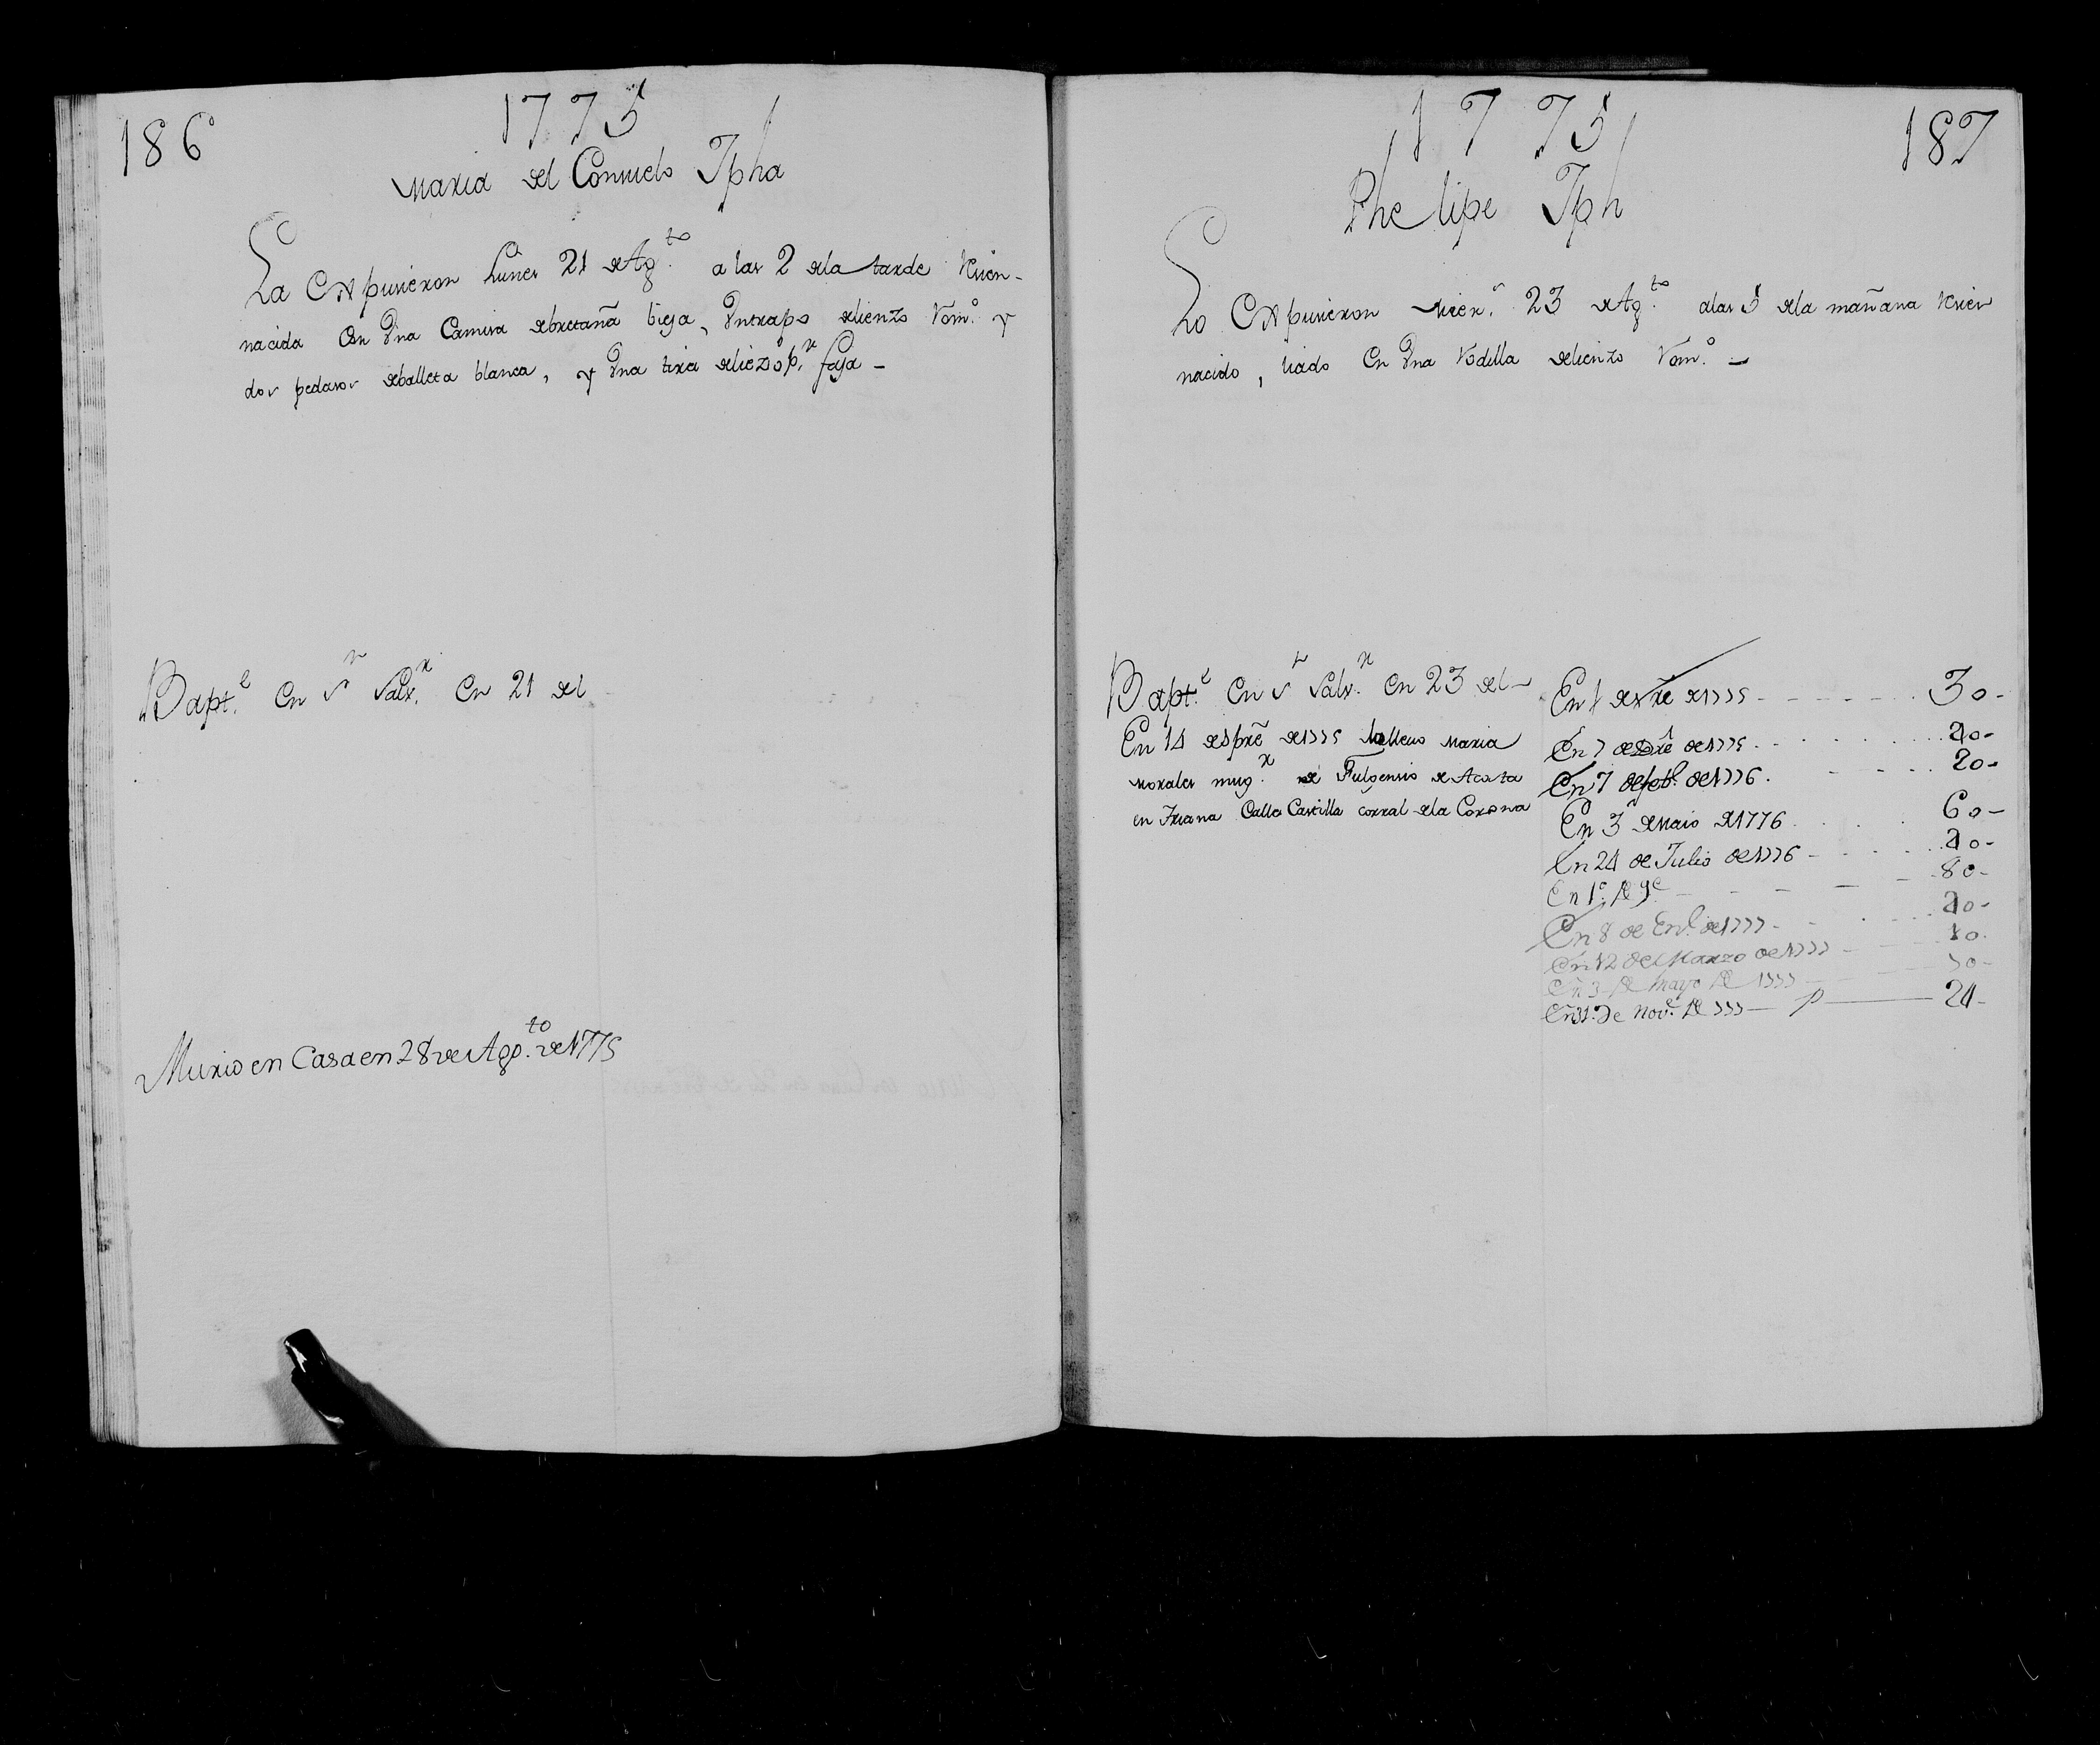 186
1775
Maria del Consuelo Jpha
La Expusieron Lunes 21 de Ag.to a las 2 de la tarde Rezien-
nacida Con Vna Camisa de bretaña bieja, Vn trapo de lienzo Vom.o y
dos pedasos de balleta blanca, y Vna tira de liezo p.r faja -
Bapt.e en S.r Salv.r en 21 del
Murio en Casa en 28 de Ago.to de 1775
1775
187
Phelipe Jph
Lo Expusieron Mier.s 23 de Ag.to a las 5 de la mañana Rezien
nacido, liado en Vna Rodilla de lienzo Vom.o -
Bapt.e en S.r Salv.r en 23 del -
En 14 de Spre de 1775 lo llevo Maria
Morales mug.r de Fulgensio de Acosta
en Triana Calle Castilla corral de la Corona
En 1 de 1775 - 30 -
En 7 de de 1775 - 20 -
En 7 de feb.o de 1776 - 20 -
En 3 de Maio de 1776 - 60 -
En 24 de Julio de 1776 - 20 -
En 1.o de 9.e - 80 -
En 8 de En.o de 1777 - 20 -
En 12 de Marzo de 1777 - 10 -
En 3 de Mayo de 1777 -
En 31 de Nov.e de 777 - p - 24 -